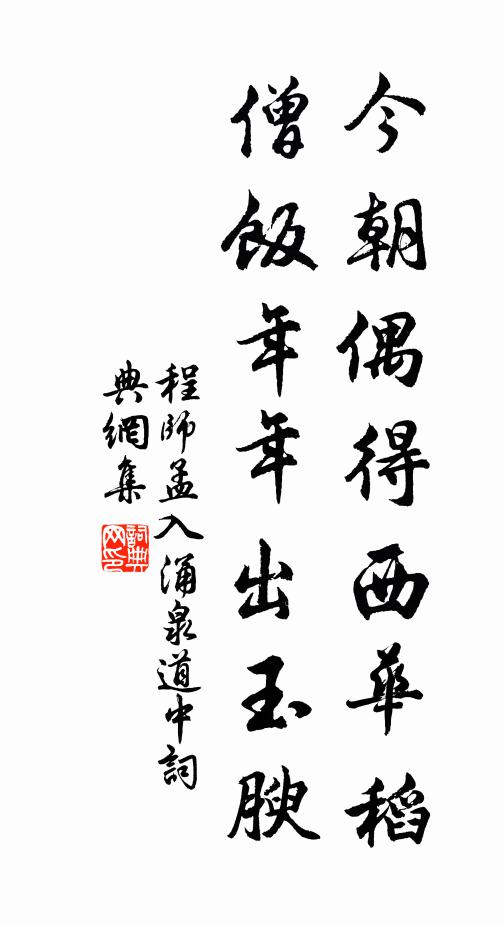 今朝偶得西華稻
僧飯年年出玉腴
程師孟入涌泉道中詞
典網集
詞典网印